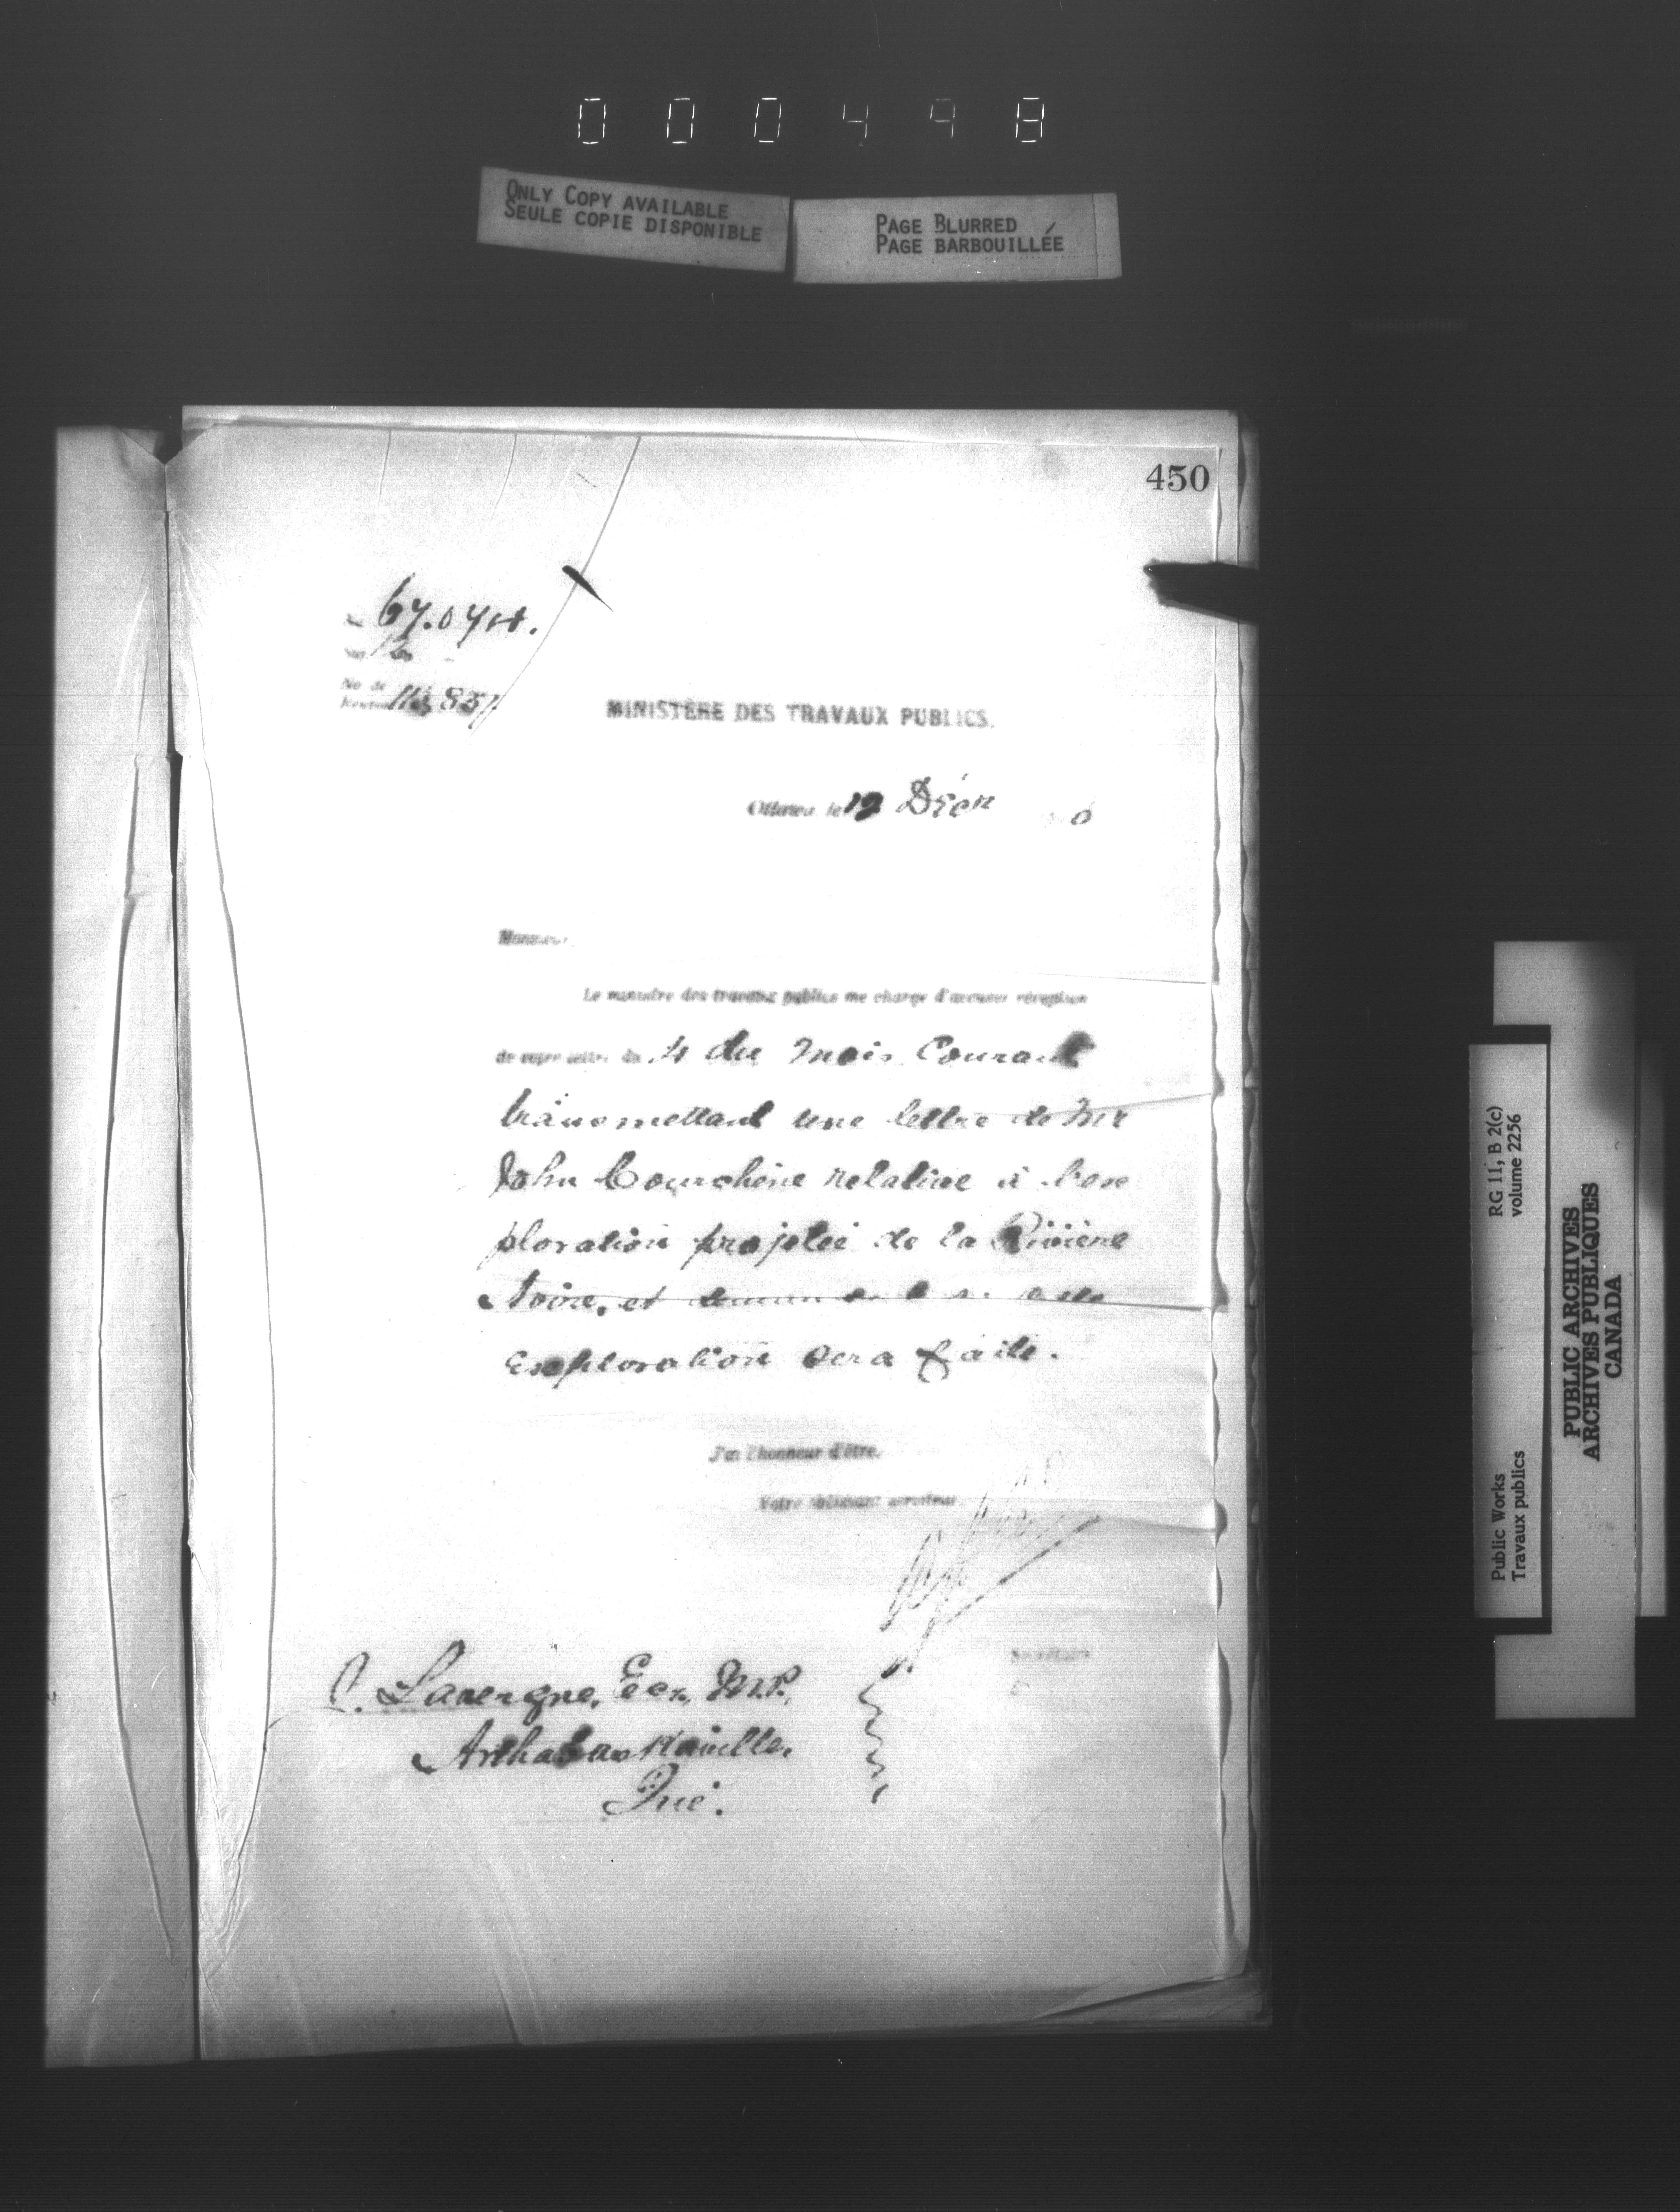 000498
ONLY COPY AVAILABLE
SEULE COPIE DISPONIBLE
PAGE BLURRED
PAGE BARBOUILLÉE
450
67.074.
No de
115857
MINISTÈRE DES TRAVAUX PUBLICS.
Ottawa le 12 Décr
Monsieur,
Le ministre des travaux publics me charge d'accuser réception
de votre lettre du 4 du mois Courant
transmettant une lettre de Mr
John Courchène relative à l'ex
ploration projetée de la Rivière
Noire, et demande si cette
exploration sera faite.
J'ai l'honneur d'être,
Votre obéissant serviteur
Secrétaire
L. Lavergne, Ecr., M.P.,
Arthabaskaville,
Qué.
Public Works
Travaux publics
RG 11, B 2(c)
volume 2256
PUBLIC ARCHIVES
ARCHIVES PUBLIQUES
CANADA